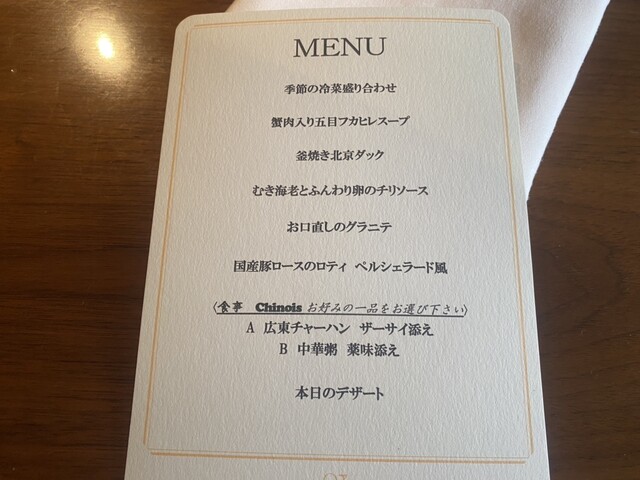 MENU
季節の冷菜盛り合わせ
蟹肉入り五目フカヒレスープ
釜焼き北京ダック
むき海老とふんわり卵のチリソース
お口直しのグラニテ
国産豚ロースのロティ ペルシェラード風
〈食事 Chinois お好みの一品をお選び下さい〉
A 広東チャーハン ザーサイ添え
B 中華粥 薬味添え
本日のデザート